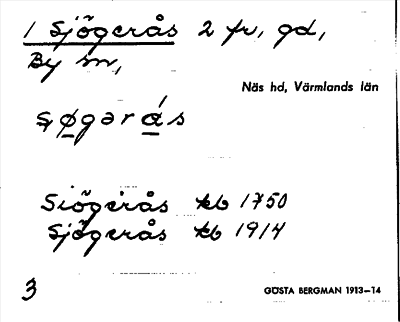 1 Sjögerås 2 fr, gd,
By sn,
Näs hd, Värmlands län
sø̱gərá̱s
Siögerås kb 1750
Sjögerås kb 1914
3
GÖSTA BERGMAN 1913–14